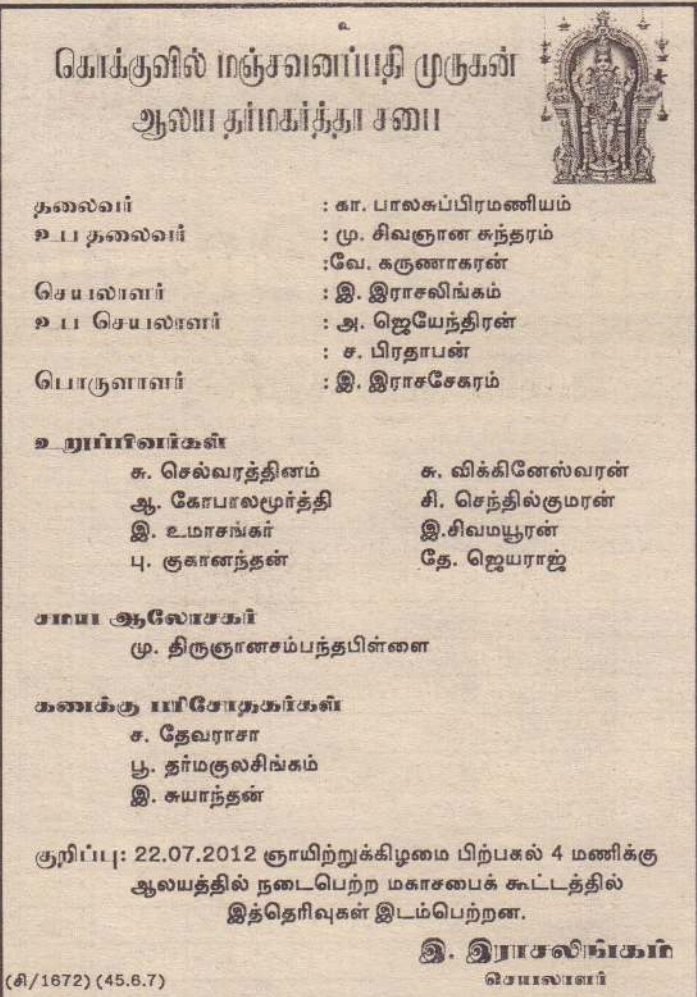 உ
கொக்குவில் மஞ்சவனப்பதி முருகன்
ஆலய தர்மகர்த்தா சபை
தலைவர் : கா. பாலசுப்பிரமணியம்
உப தலைவர் : மு. சிவஞான சுந்தரம்
:வே. கருணாகரன்
செயலாளர் : இ. இராசலிங்கம்
உப செயலாளர் : அ. ஜெயேந்திரன்
: ச. பிரதாபன்
பொருளாளர் : இ. இராசசேகரம்
உறுப்பினர்கள்
சு. செல்வரத்தினம் சு. விக்கினேஸ்வரன்
ஆ. கோபாலமூர்த்தி சி. செந்தில்குமரன்
இ. உமாசங்கர் இ.சிவமயூரன்
பு. குகானந்தன் தே. ஜெயராஜ்
சமய ஆலோசகர்
மு. திருஞானசம்பந்தபிள்ளை
கணக்கு பரிசோதகர்கள்
ச. தேவராசா
பூ. தர்மகுலசிங்கம்
இ. சுயாந்தன்
குறிப்பு: 22.07.2012 ஞாயிற்றுக்கிழமை பிற்பகல் 4 மணிக்கு
ஆலயத்தில் நடைபெற்ற மகாசபைக் கூட்டத்தில்
இத்தெரிவுகள் இடம்பெற்றன.
இ. இராசலிங்கம்
செயலாளர்
(சி/1672) (45.6.7)